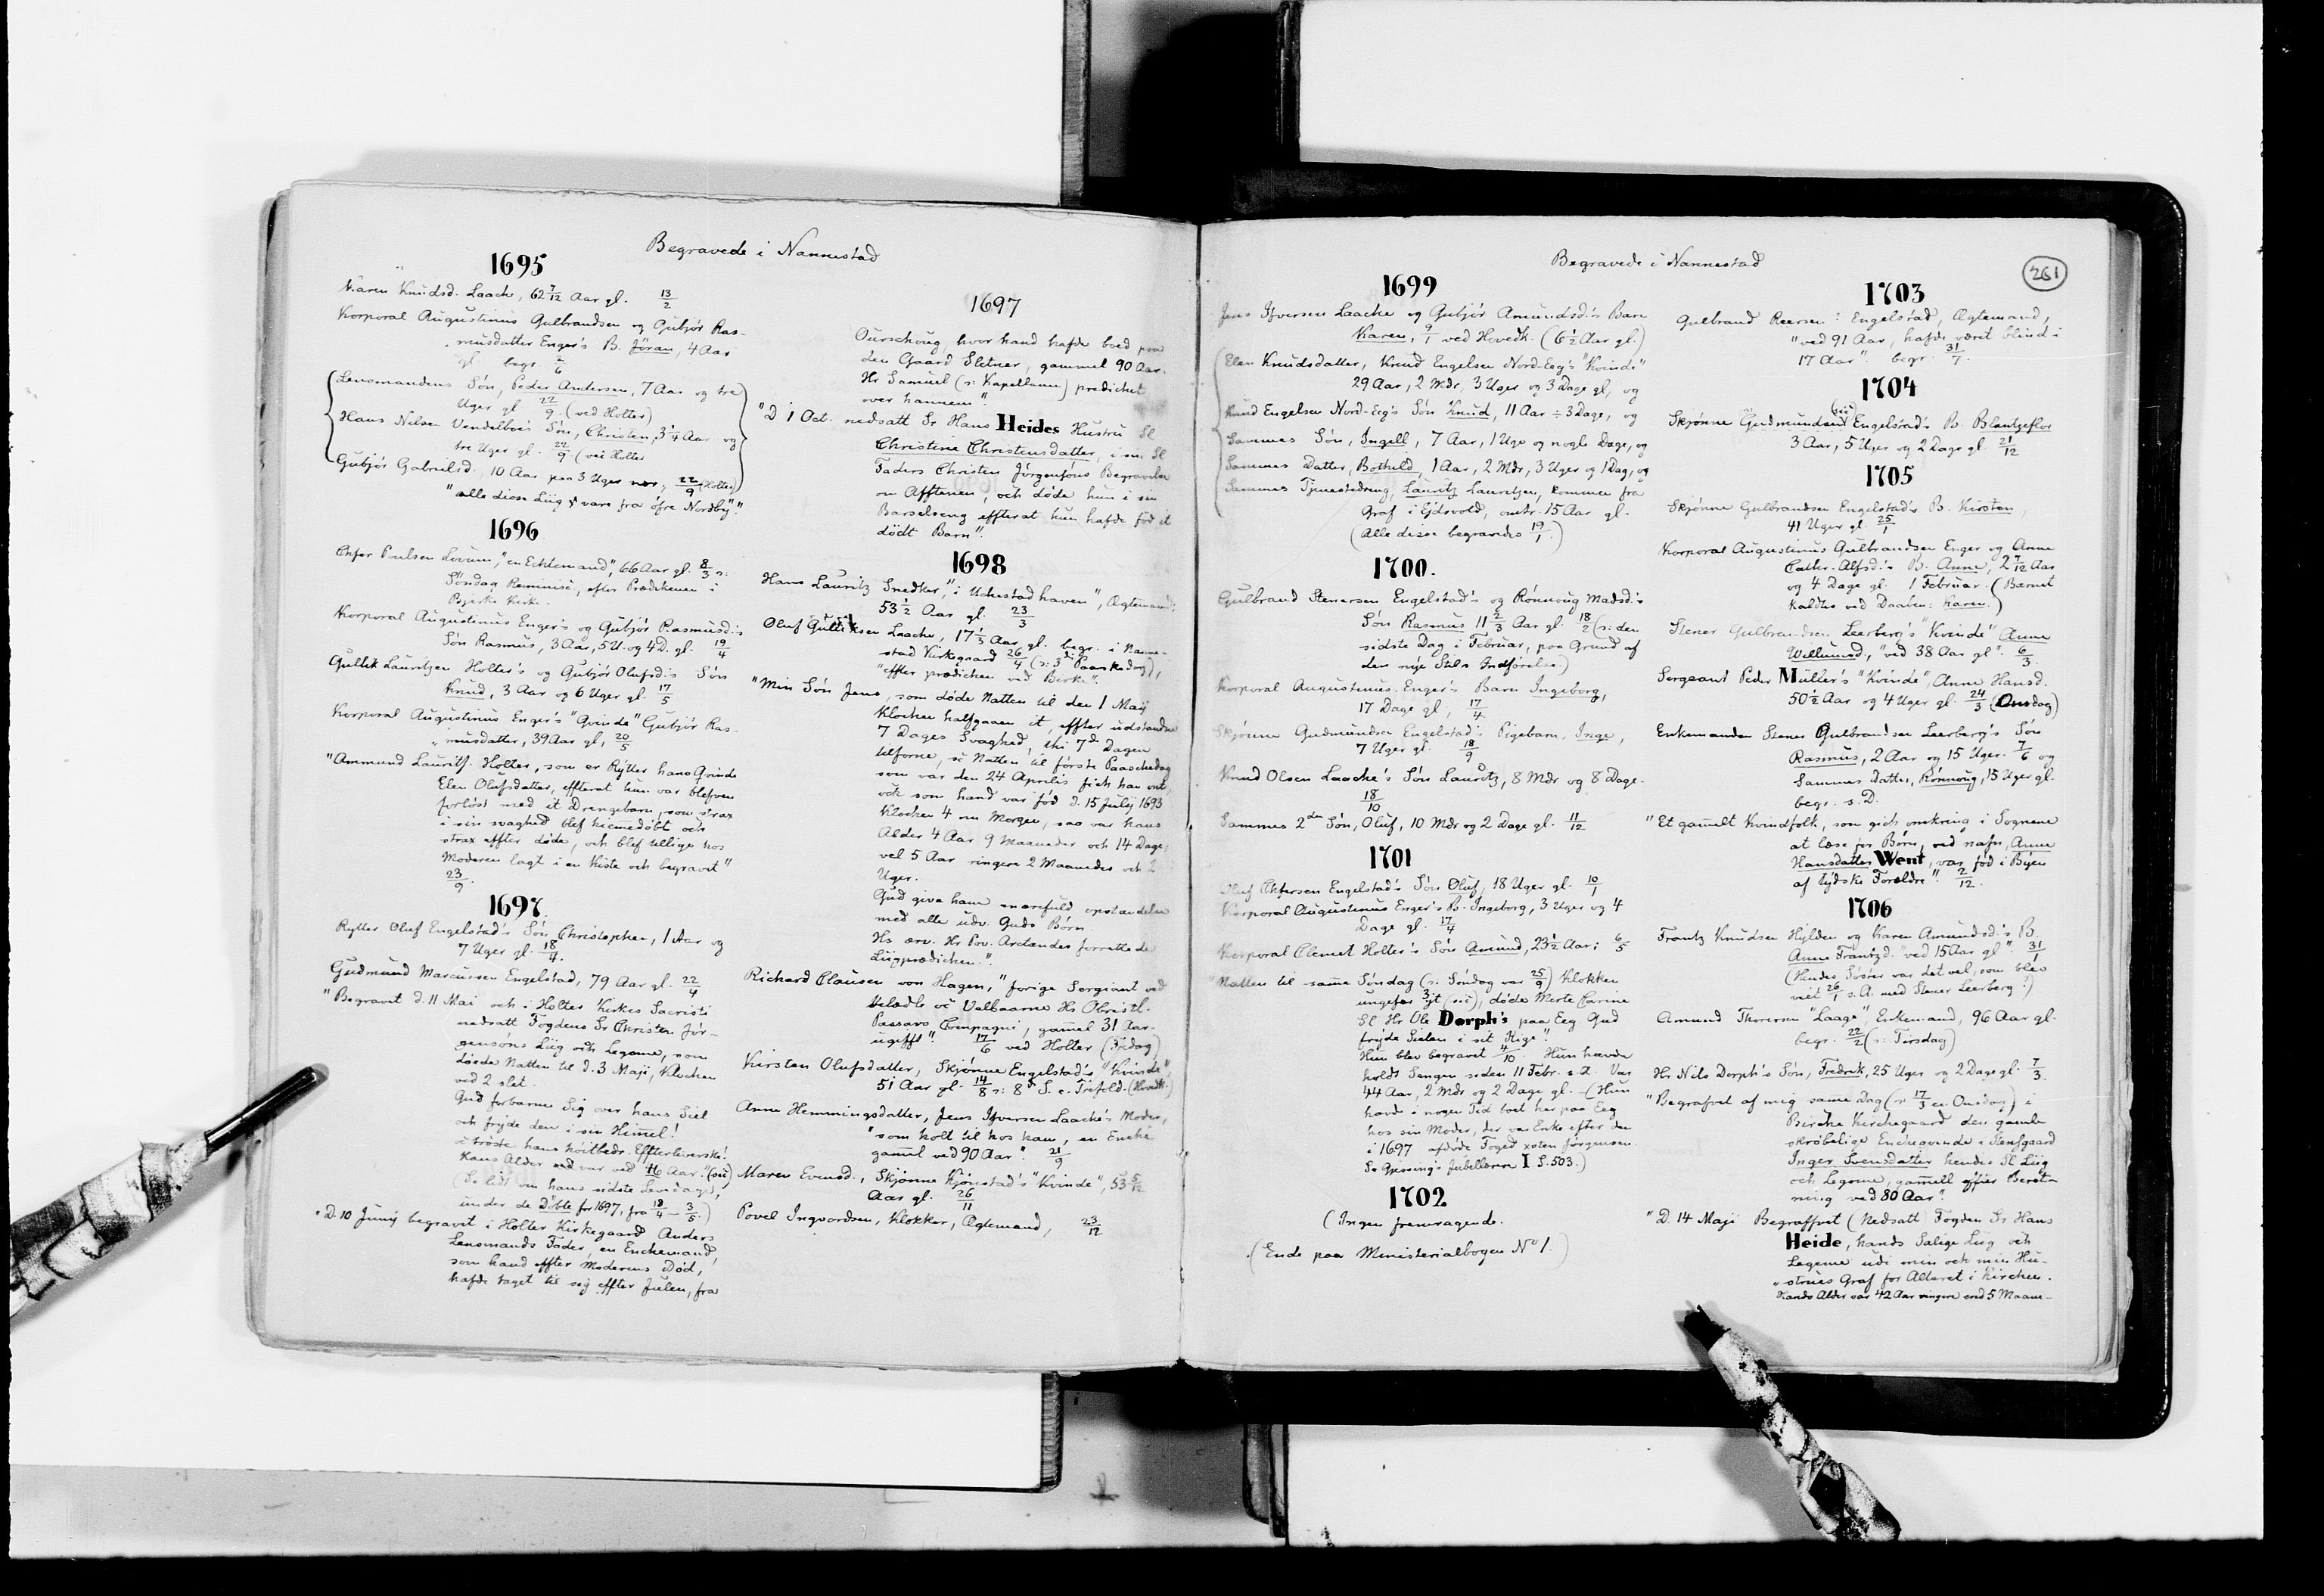 Begravede i Nannestad
1695
Karen Knudsd. Laache, 62 7/12 Aar gl. 13/2
Korporal Augustinus Gulbrandsen og Gubjør Ras-
musdatter Enger's B. Jöran, 4 Aar
gl. begr.
Lensmandens Søn, Peder Andersen, 7 Aar og tre
Uger gl. 22/9. (ved Holter)
Hans Nilsen Vendelboe's Søn, Christen, 3 1/4 Aar og
tre Uger gl. 22/9 (ved Holter
Gubjør Gabrielsd. 10 Aar paa 3 Uger nær, 22/9 (Holter)
"alle disse Liig vare fra öfre Nordby."
1696
Poulsen Lovum, "en Echtemand", 66 Aar gl. 8/3 ɔ:
Søndag Reminisc. efter Prædikenen i
Bjerke Kirke.
Korporal Augustinus Enger's og Gubjør Rasmusd.'s
Søn Rasmus, 3 Aar, 5 U. og 4 D. gl. 19/4
Gullik Lauritzen Holter's og Gubjør Olufsd.'s Søn
Knud, 3 Aar og 6 Uger gl. 17/5
Korporal Augustinus Enger's "Qvinde" Gubjør Ras-
musdatter, 39 Aar gl, 20/5
"Ammund Lauritz. Holter, som er Rytter hans Qvinde
Elen Olufsdatter, effterat hun var blefven
forløst med it Drengebarn, som strax
i sin svaghed blef hiemedöbt och
strax effter døde, och blef tillige hos
Moderen lagt i en Kiste och begravet"
23/9.
1697.
Rytter Oluf Engelstad's Søn Christopher, 1 Aar og
7 Uger gl. 18/4.
Gudmund Marcussen Engelstad, 79 Aar gl. 22/4
"Begravit d. 11 Mai och i Holter Kirkes Sacristi
nedsatt Fogdens Sr Christen Jör-
gensöns Liig och Legome, som
døde Natten til d. 3 Maji, Klochen
ved 2 slet.
Gud forbarme Sig over hans Siel
och fryde den i sin Himmel!
oc tröste hans höitbedr. Effterleverske!
hans Alder var ved 46 Aar." (sic)
(Se lidt om hans sidste Levedage,
under de Döbte for 1697, fra 18/4 – 3/5.)
"D. 10 Junij begravet i Holter Kirkegaard Anders
Lensmands Fader, en Enchemand,
som hand effter Moderens Död,
hafde taget til sig effter Julen, fra
1697
Ourschoug, hvor hand hafde boed paa
den Gaard Sletner, gammel 90 Aar.
Hr Samuel (ɔ: Kapellanen) predichet
over hannem".
"D 1 Oct. nedsatt Sr Hans Heides Hustru Sl
Christine Christensdatter, i sin Sl
Faders Christen Jörgensöns Begravelse
om Afftenen, och døde hun i sin
Barselseng effterat hun hafde föd it
dödt Barn".
1698
Hans Lauritz Snedker, "i Uchustad haven", Ægtemand;
53 1/2 Aar gl. 23/3
Oluf Gulliksen Laache, 17 1/3 Aar gl. begr. i Nanne-
stad Kirkegaard 26/4 (ɔ: 3die Paaskedag),
"effter prædichen ved Bierke".
"Min Søn Jens, som døde Natten til den 1 Maij
Klochen halfgaaen it, effter udstanden
7 Dages Svaghed, thi 7de Dagen
tilforne, oc Natten til förste Paaschedag
som var den 24 Aprilis fich han ont,
och som hand var föd d. 15 Julij 1693
Klochen 4 om Morgen, saa var hans
Alder 4 Aar 9 Maaneder och 14 Dage,
vel 5 Aar ringere 2 Maaneder och 2
Uger.
Gud give ham en ærefuld opstandelse
med alle udv. Guds Börn.
Hr Arctander forrettede
Liigprædichen.".
Richard Clausen von Hagen, "forige Sergiant ved
Velædle oc Velbaarne Hr Obristl.
Passavs Compagni, gammel 31 Aar-
ugifft". 17/6 ved Holter (Fredag)
Kirsten Olufsdatter, Skjønne Engelstad's "Kvinde",
51 Aar gl. 14/8 ɔ: 8de S. e. Trefold. (Hovedk.)
Anne Hemmingsdatter, Jens Iffversen Laache's Moder,
"som holt til hos ham, en Enche
gamel ved 90 Aar". 21/9
Maren Evensd., Skjønne Kjönstad's "Kvinde", 53 5/12
Aar gl. 26/11
Povel Ingvordsen, Klokker, Ægtemand, 23/12
Begravede i Nannestad
261
1699
Jens Ifversen Laache og Gubjør Amundsd.'s Barn
Karen, 9/1 ved Hovedk. (6 1/2 Aar gl.)
Elen Knudsdatter, Knud Engelsen Nord-Eeg's "Kvinde"
29 Aar, 2 Mdr, 3 Uger og 3 Dage gl, og
Knud Engelsen Nord-Eeg's Søn Knud, 11 Aar ÷ 3 Dage, og
Sammes Søn, Ingell, 7 Aar, 1 Uge og nogle Dage, og
Sammes Datter, Botheld, 1 Aar, 2 Mdr, 3 Uger og 1 Dag, og
Sammes Tjenestedreng, Lauritz Lauritzen, kommen fra
Graf i Ejdsvold, omtr. 15 Aar gl.
(Alle disse begravedes 19/1.)
1700.
Gulbrand Stenersen Engelstad's og Rønnoug Madsd.'s
Søn Rasmus 11 2/3 Aar gl. 18/2 (ɔ: den
sidste Dag i Februar, paa Grund af
den nye Stils Indførelse.)
Korporal Augustinus Enger's Barn Ingeborg,
17 Dage gl, 17/4
Skjønne Gudmundsen Engelstad's Pigebarn, Inge,
7 Uger gl. 18/9
Knud Olsen Laache's Søn Lauritz, 8 Mdr og 8 Dage.
18/10
Sammes 2den Søn, Oluf, 10 Mdr og 2 Dage gl. 11/12
1701
Oluf Engelstad's Søn Oluf, 18 Uger gl. 10/1
Korporal Augustinus Enger's B. Ingeborg, 3 Uger og 4
Dage gl. 17/4
Korporal Clemet Holter's Søn Amund, 23 1/2 Aar; 6/5
"Natten til samme Søndag (ɔ: Søndag var 25/9) Klokken
ungefær 3jt (sic), døde Merte Carine
Sl Hr Ole Dorph's paa Eeg Gud
fryde Sielen i sit Rige".
Hun blev begravet 4/10. Hun havde
holdt Sengen siden 11 Febr. s. A. Var
44 Aar, 2 Mdr og 2 Dage gl. – (Hun
havde i nogen Tid boet her paa Eeg
hos sin Moder, der var Enke efter den
i 1697 afdøde Foged xsten Jørgensen.
Se Giessing's Jubellærere I S. 503.)
1702
(Ingen fremragende.
(Ende paa Ministerialbogen No 1.)
1703
Gulbrand Reersen: Engelstad, Ægtemand,
"ved 91 Aar, hafde været blind i
17 Aar". begr. 31/7.
1704
Skjønne Gudmundsen (sic) Engelstad's B. Blantzeflor
3 Aar, 5 Uger og 2 Dage gl. 21/12
1705
Skjønne Gulbrandsen Engelstad's B. Kirsten,
41 Uger gl. 25/1
Korporal Augustinus Gulbrandsen Enger og Anne
Cathr. Alfsd.'s B. Anne, 2 7/12 Aar
og 4 Dage gl. 1 Februar. (Barnet
kaldtes ved Daaben: Karen.)
Stener Gulbrandsen Leerberg's "Kvinde" Anne
Willumsd, "ved 38 Aar gl". 6/3.
Sergeant Peder Müller's "Kvinde", Anne Hansd.
50 1/2 Aar og 4 Uger gl. 24/3 (Onsdag)
Enkemanden Stener Gulbrandsen Leerberg's Søn
Rasmus, 2 Aar og 15 Uger. 7/6 og
Sammes Datter, Rönnoug, 15 Uger gl.
begr. s. D.
"Et gamelt Kvindfolk, som gich omkring i Sognene
at læse for Börn, ved nafn, Anne
Hansdatter Went, var föd i Byen
af tydske Forældre". 2/12.
1706
Frantz Knudsen Hylden og Karen Amundsd.'s B.
Anne Frantzd. "ved 15 Aar gl". 31/1
(Hendes Søster var det vel, som blev
viet 26/1 s. A. med Stener Leerberg?)
Amund Thoresen "Laage" Enkemand, 96 Aar gl.
begr. 22/2 (ɔ: Tirsdag)
Hr Nils Dorph's Søn, Fredrik, 25 Uger og 2 Dage gl. 7/3.
"Begrafvet af mig same Dag (ɔ: 17/3 en Onsdag) i
Bircke Kirchegaard den gamle
skröbelige Encheqvinde i Stensgaard
Inger Svensdatter hendes Sl Liig
och Legome, gamell effter Beret-
ning ved 80 Aar".
"D. 14 Maji Begraffvet (Nedsatt) Fogden Sr Hans
Heide, hands Salige Liig och
Legeme udi min och min Hu-
strues Graf for Alteret i Kirchen.
Hands Alder var 42 Aar ringere end 5 Maane-